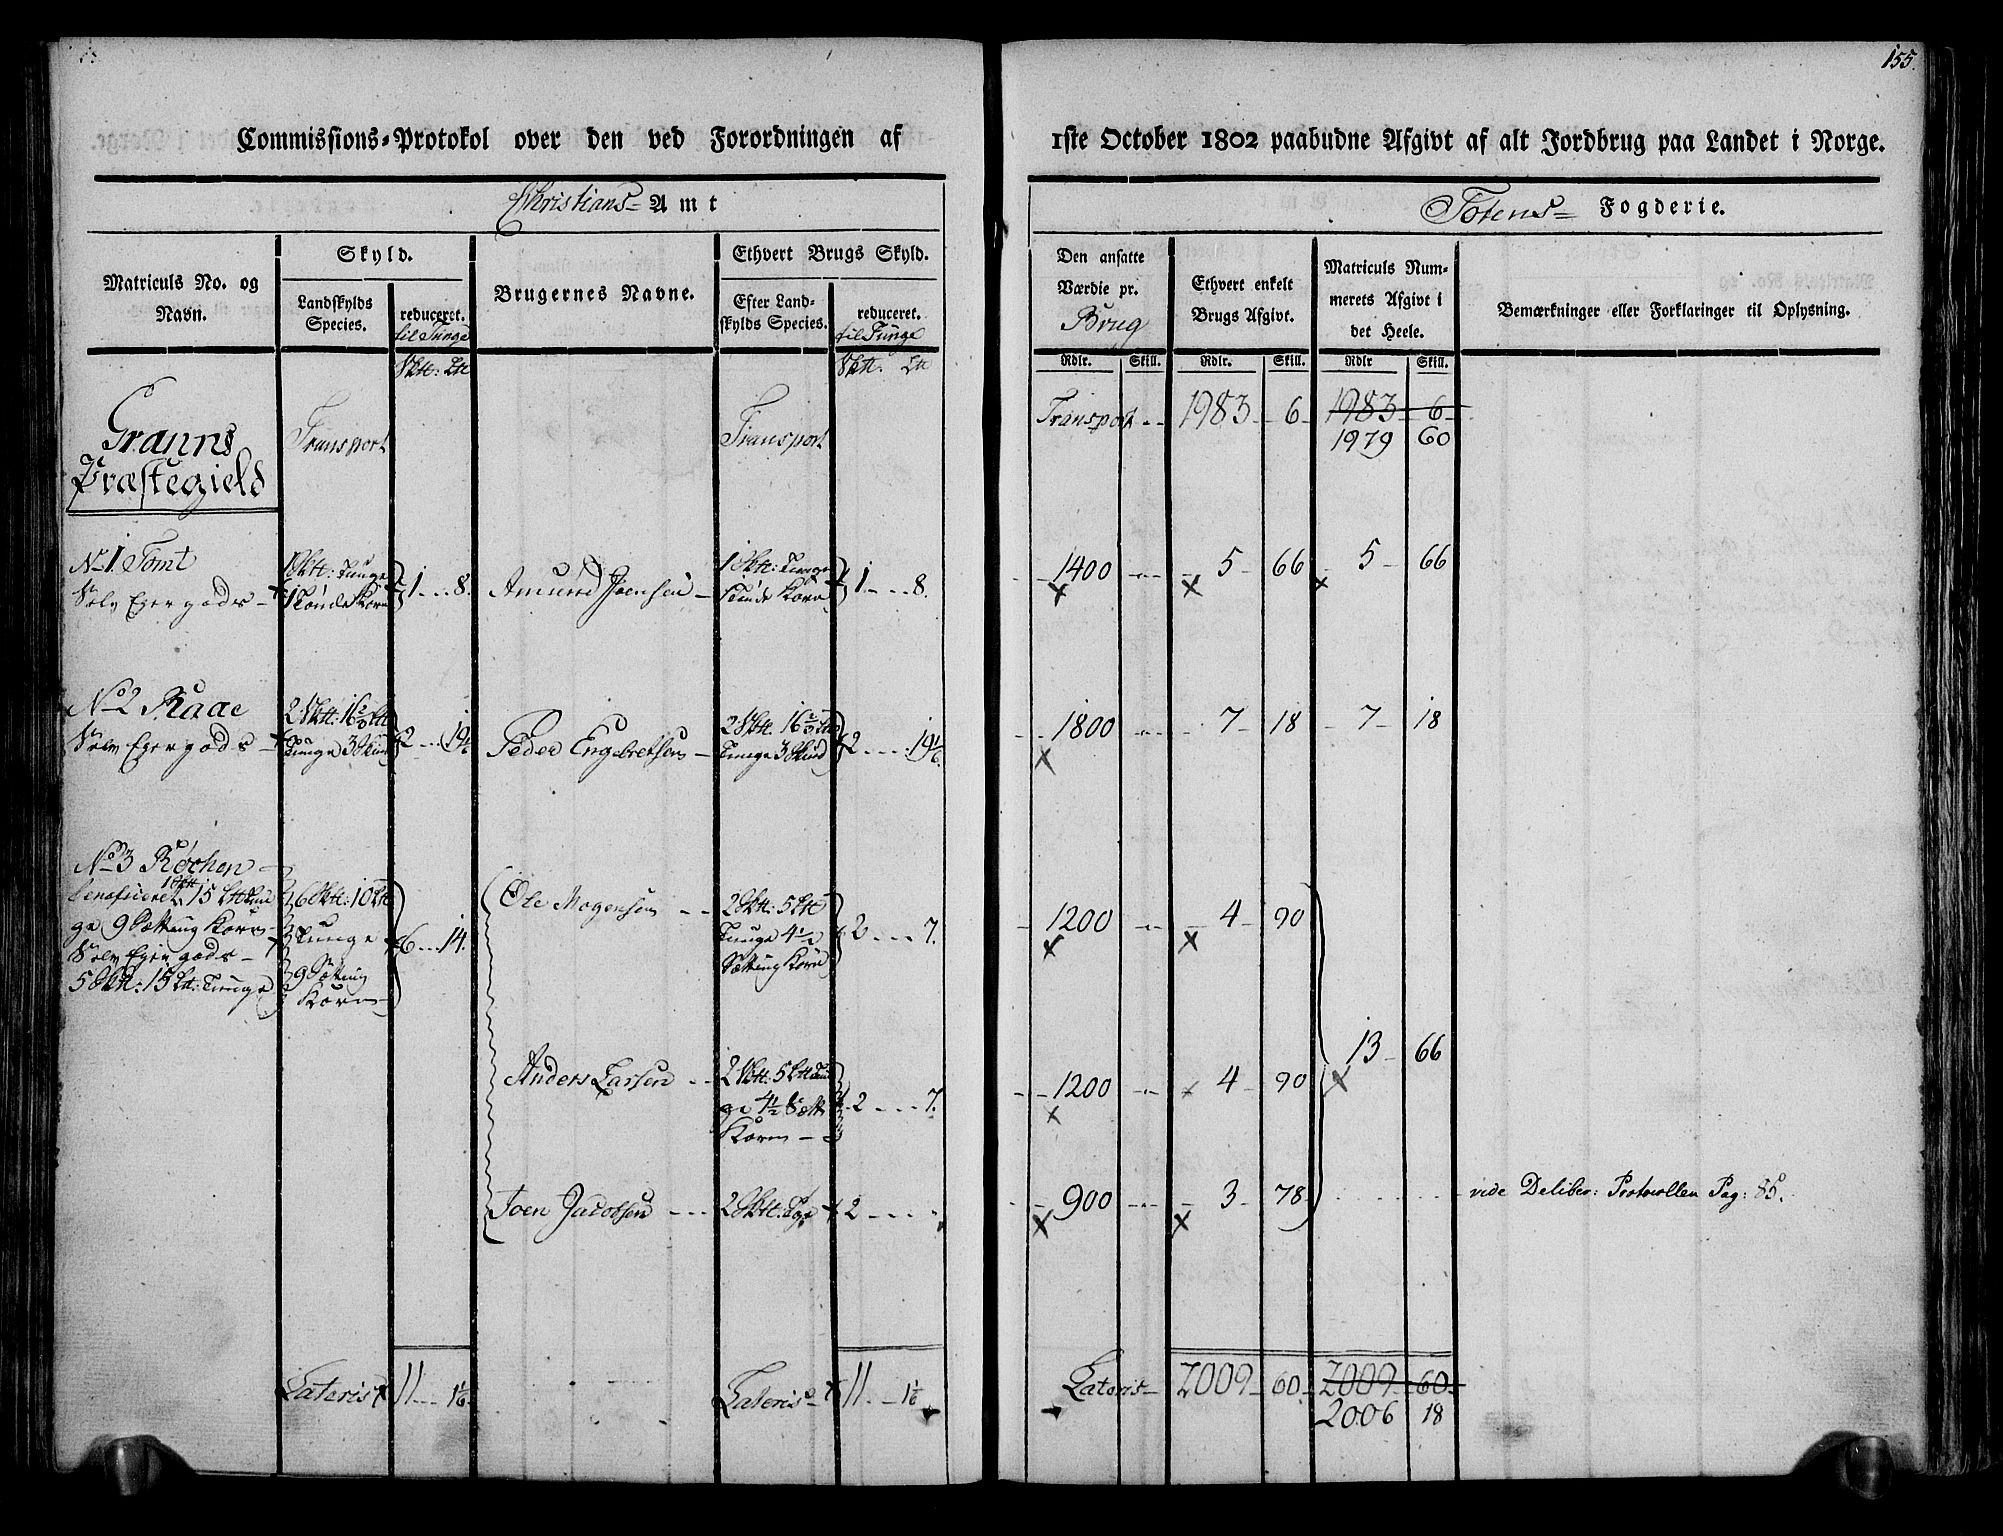 155.
Commissions-Protokol over den ved Forordningen af
1ste October 1802 paabudne Afgivt af alt Jordbrug paa Landet i Norge.
Christians- Amt
Totens- Fogderie.
Matriculs No. og Navn.
Skyld.
Landskylds Species.
reduceret. til Tunge
Brugernes Navne.
Ethvert Brugs Skyld.
Efter Landskylds Species.
reduceret. til Tunge
Den ansatte Værdie pr. Brug
Ethvert enkelt Brugs Afgivt.
Matriculs Nummerets Afgivt i det Heele.
Bemærkninger eller Forklaringer til Oplysning.
Sktt: Ltt
Sktt: Ltt
Rdlr. Skill. Rdlr. Skill. Rdlr Skill.
Granns
Præstegield
Transport
Transport
Transport 1983 6 1983 6
1979 60
No 1 Tomt
Selv Eiergods
1 Sktt: Tunge
1 Tönde Korn
1 8.
Amund Joensen
1 Sktt: Tunge
1 Tönde Korn
1 8.
1400 5 66 5 66
No 2 Raae
Selv Eiergods
2 Sktt: 16 2/3 Ltt
Tunge 3 Skind
2 19 1/6
Peder Engebretsen
2 Sktt. 16 2/3 Ltt
Tunge 3 Skind
2 19 1/6.
1800 7 18 7 18
No 3 Röchen
beneficeret 1 Sktt 15 Ltt Tun
ge 9 Sætting Korn
Selv Eiergods
5 Sktt: 15 Ltt: Tunge
6 Sktt: 10 Ltt
Tunge
9 Sætting
Korn
6 14.
Ole Mogensen
2 Sktt: 5 Ltt
Tunge 4 1/2
Sætting Korn
2 7.
1200 4 90
Anders Larsen
2 Sktt: 5 Ltt Tun
ge 4 1/2 Sætt
Korn
2 7.
1200 4 90 13 66
Joen Jacobsen
2 Sktt: Tge
2
900 3 78
vide Deliber: Protocollen Pag: 85.
Lateris 11 1 1/6
Lateris 11 1 1/6
Lateris 2009 60 2009 60
2006 18